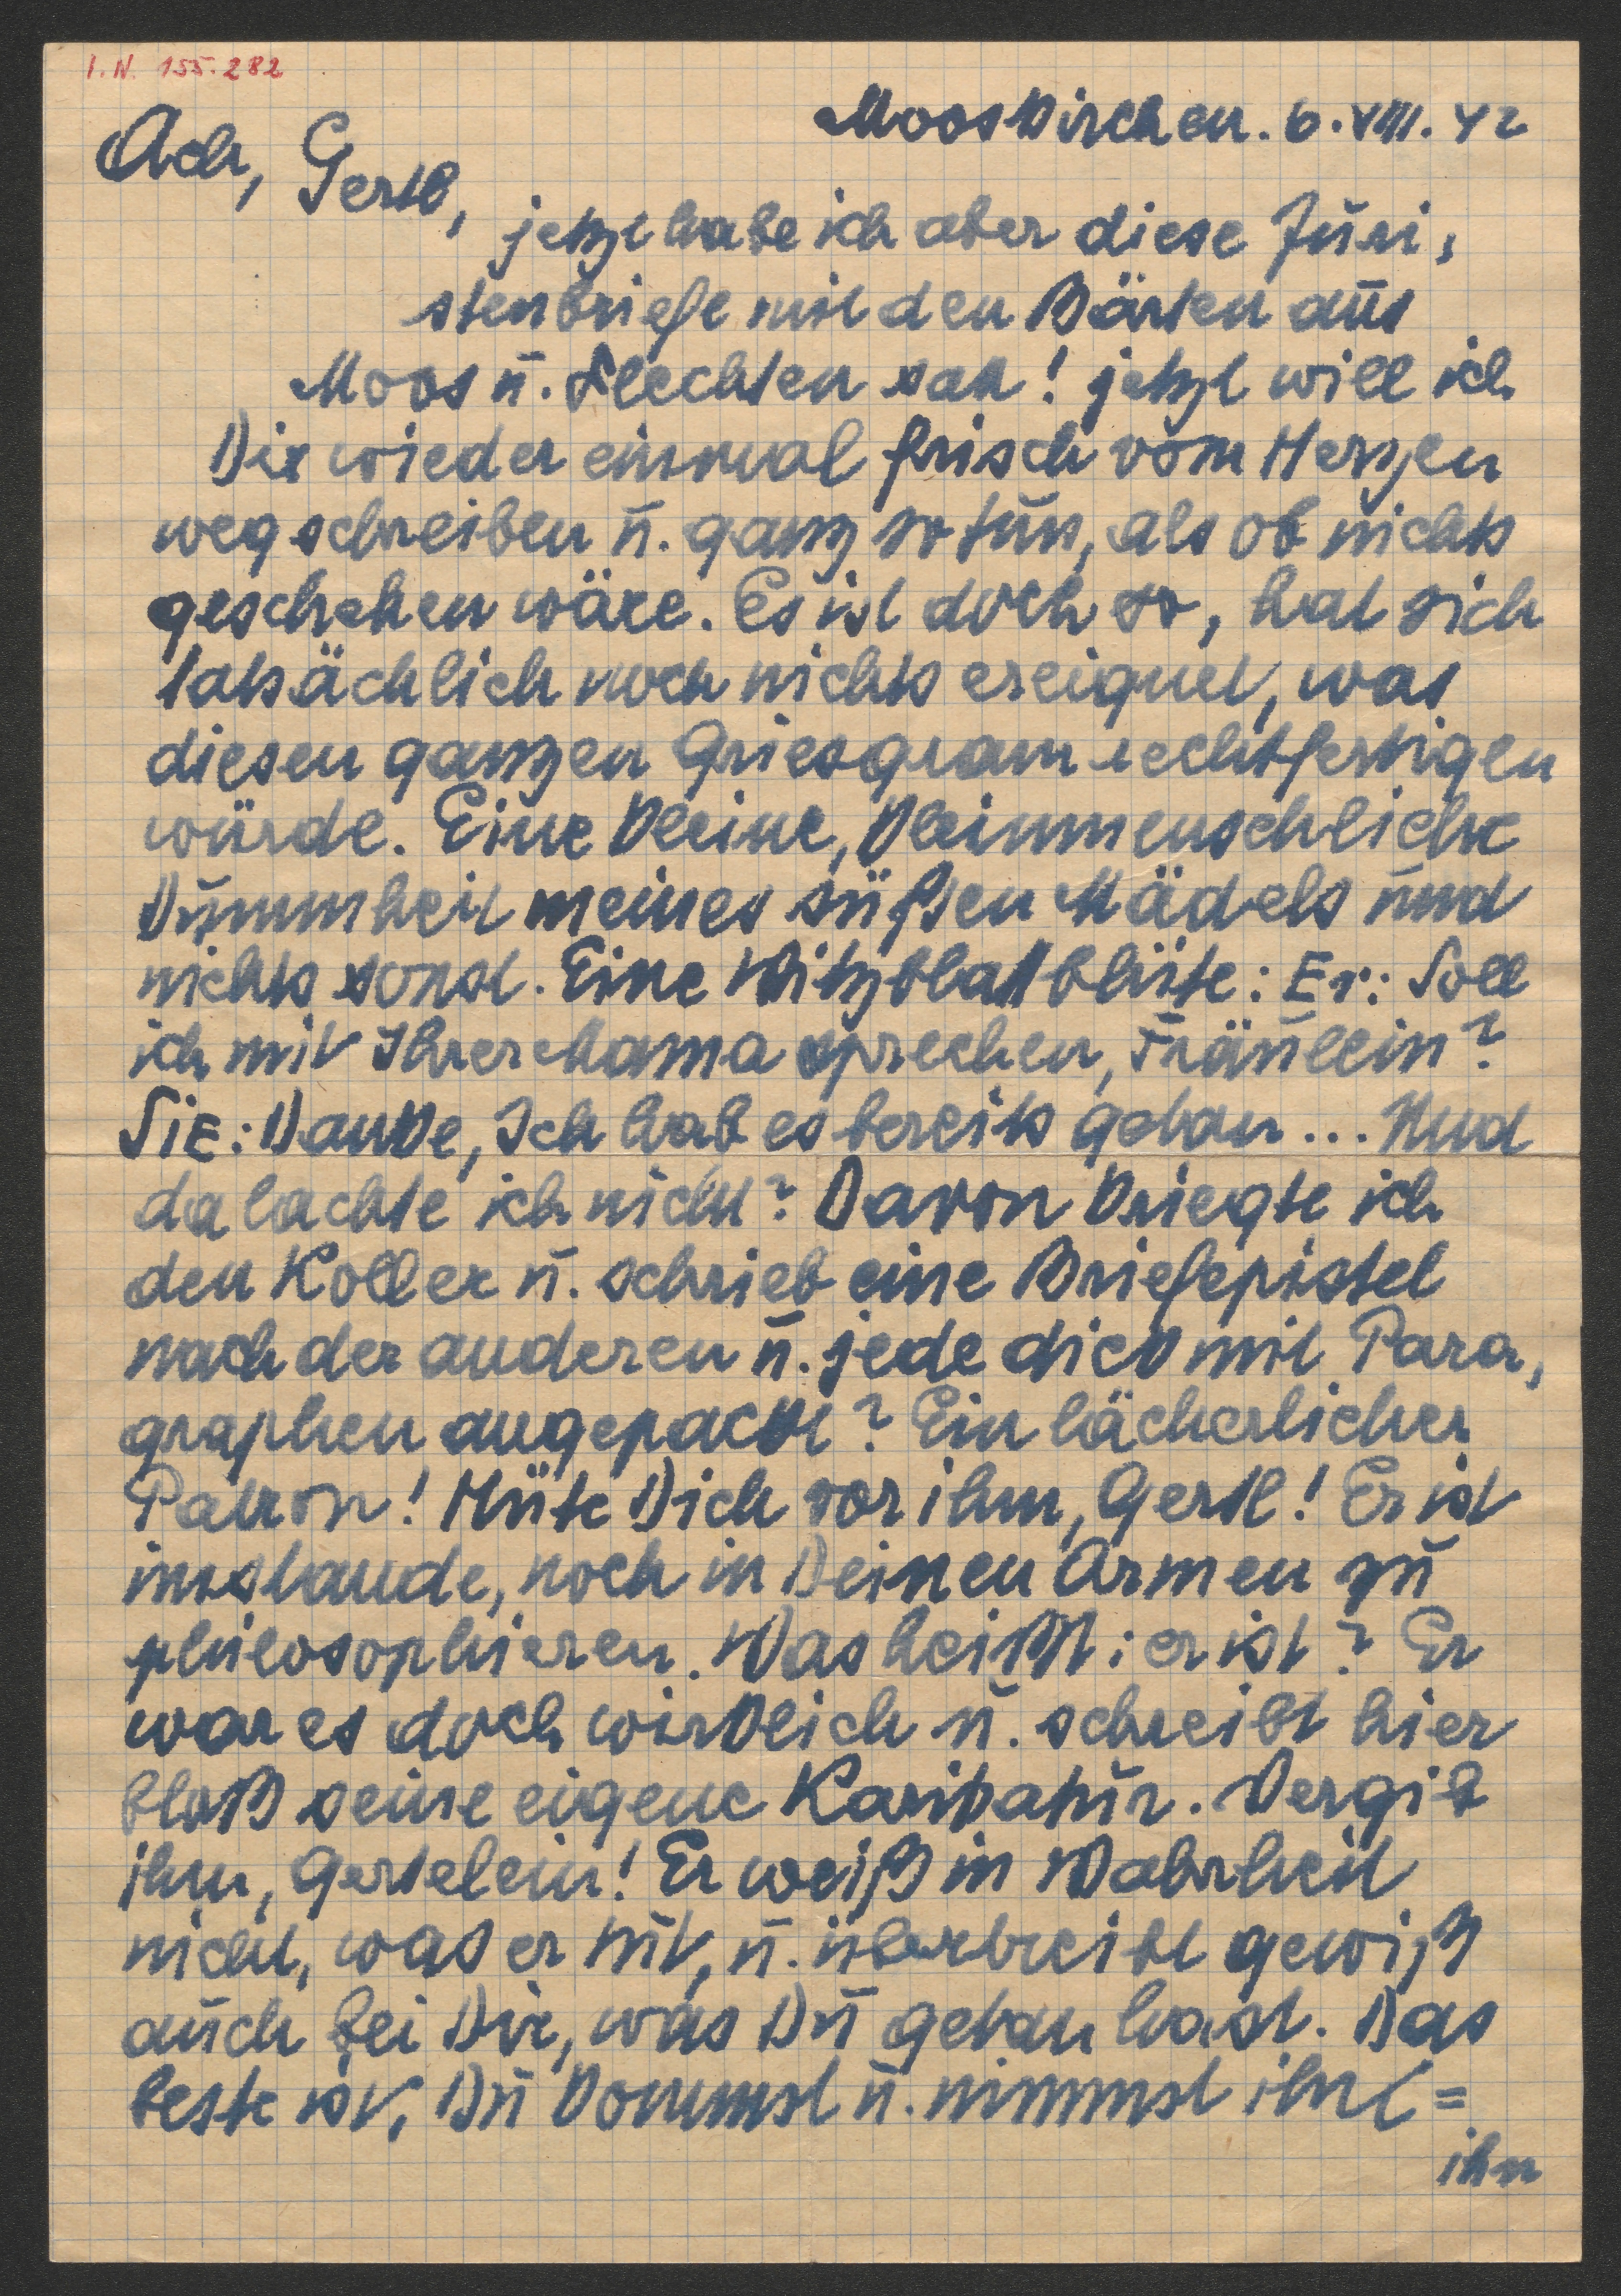 I.N. 155.282
Mooskirchen. 6. VIII. 42
Ach, Gertl,
jetzt habe ich aber diese Juri,
stenbriefe mit den Bärten aus
Moos u. Flechten satt! jetzt will ich
Dir wieder einmal frisch vom Herzen
weg schreiben u. ganz so tun, als ob nichts
geschehen wäre. Es ist doch so, hat sich
tatsächlich noch nichts ereignet, was
diesen ganzen Griesgram rechtfertigen
würde. Eine kleine, kleinmenschliche
Dummheit meines süßen Mädels und
nichts sonst. Eine Witzblattblüte: Er: Soll
ich mit Ihrer Mama sprechen, Fräulein?
Sie: Danke, Ich hab es bereits getan... Und
da lachte ich nicht? Davon kriegte ich
den Koller u. schrieb eine Briefepistel
nach der anderen u. jede dick mit Para,
graphen angepackt? Ein lächerlicher
Patron! Hüte Dich vor ihm, Gertl! Er ist
imstande, noch in Deinen Armen zu
philosophieren. Was heißt: er ist? Er
war es doch wirklich u. schreibt hier
bloß seine eigene Karikatur. Vergib
ihm, Gertelein! Er weiß in Wahrheit
nicht, was er tut, u. übertreibt gewiß
auch bei Dir, was Du getan hast. Das
beste ist, Du kommst u. nimmst ihn =
ihn